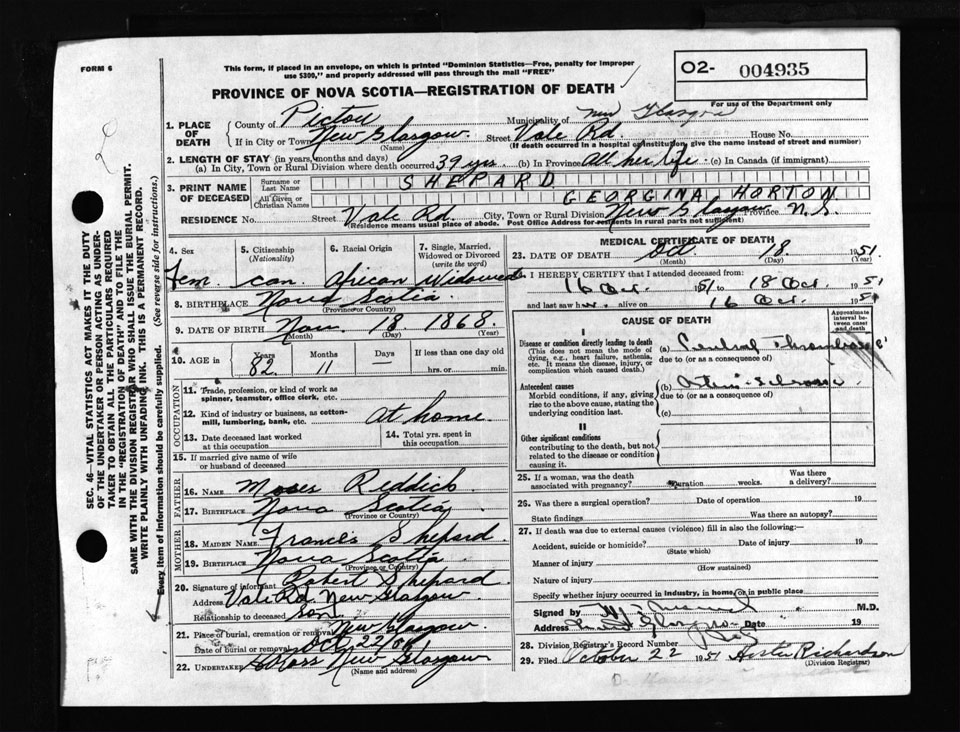 FORM 6
This form, if placed in an envelope, on which is printed "Dominion Statistics—Free, penalty for improper
use $300," and properly addressed will pass through the mail "FREE"
O2- 004935
For use of the Department only
PROVINCE OF NOVA SCOTIA—REGISTRATION OF DEATH
1. PLACE OF DEATH County of Pictou Municipality of New Glasgow
If in City or Town New Glasgow (Name) Street Vale Rd. House No.
(If death occurred in a hospital or institution, give the name instead of street and number)
2. LENGTH OF STAY (in years, months and days)
(a) In City, Town or Rural Division where death occurred 39 yrs. (b) In Province All her life (c) In Canada (if immigrant)
3. PRINT NAME OF DECEASED Surname or Last Name SHEPARD
All Given or Christian Names GEORGINA HORTON
RESIDENCE No. Street Vale Rd. City, Town or Rural Division New Glasgow Province N.S.
(Residence means usual place of abode. Post Office Address for residents in rural parts not sufficient)
4. Sex 5. Citizenship (Nationality) 6. Racial Origin 7. Single, Married, Widowed or Divorced (write the word)
Fem. can. African Widowed
8. BIRTHPLACE Nova Scotia
(Province or Country)
9. DATE OF BIRTH Nov. 18. 1868
(Month) (Day) (Year)
10. AGE in Years 82 Months 11 Days If less than one day old hrs. or min.
OCCUPATION
11. Trade, profession, or kind of work as
spinner, teamster, office clerk, etc.
12. Kind of industry or business, as cotton-
mill, lumbering, bank, etc. at home
13. Date deceased last worked
at this occupation
14. Total yrs. spent in
this occupation
15. If married give name of wife
or husband of deceased
FATHER
16. NAME Moses Reddick
17. BIRTHPLACE Nova Scotia
(Province or Country)
MOTHER
18. MAIDEN NAME Francis Shepard
19. BIRTHPLACE Nova Scotia
(Province or Country)
20. Signature of informant Robert Shepard
Address Vale Rd. New Glasgow
Relationship to deceased Son
21. Place of burial, cremation or removal New Glasgow
Date of burial or removal Oct 22
22. UNDERTAKER New Glasgow
(Name and address)
MEDICAL CERTIFICATE OF DEATH
23. DATE OF DEATH Oct. 18 1951
(Month) (Day) (Year)
I HEREBY CERTIFY that I attended deceased from
16 Oct. 1951 to 18 Oct. 1951
and last saw her alive on 16 Oct. 195
CAUSE OF DEATH
Approximate interval between onset and death
I
Disease or condition directly leading to death
(This does not mean the mode of
dying, e.g., heart failure, asthenia,
etc. It means the disease, injury, or
complication which caused death.)
(a) Cerebral Thrombosis
due to (or as a consequence of)
Antecedent causes
Morbid conditions, if any, giving
rise to the above cause, stating the
underlying condition last.
(b)
due to (or as a consequence of)
(c)
II
Other significant conditions
contributing to the death, but not
related to the disease or condition
causing it.
25. If a woman, was the death
associated with pregnancy? Duration weeks. Was there
a delivery?
26. Was there a surgical operation? Date of operation 19
State findings Was there an autopsy?
27. If death was due to external causes (violence) fill in also the following:—
Accident, suicide or homicide? Date of injury 19
(State which)
Manner of injury
(How sustained)
Nature of injury
Specify whether injury occurred in industry, in home, or in public place
Signed by M.D.
Address Date 19
28. Division Registrar's Record Number
29. Filed October 22 1951 Richardson
(Division Registrar)
SEC. 46—VITAL STATISTICS ACT MAKES IT THE DUTY
OF THE UNDERTAKER OR PERSON ACTING AS UNDER-
TAKER TO OBTAIN ALL THE PARTICULARS REQUIRED
IN THE "REGISTRATION OF DEATH" AND TO FILE THE
SAME WITH THE DIVISION REGISTRAR WHO SHALL ISSUE THE BURIAL PERMIT.
WRITE PLAINLY WITH UNFADING INK. THIS IS A PERMANENT RECORD.
Every item of information should be carefully supplied. (See reverse side for instructions.)